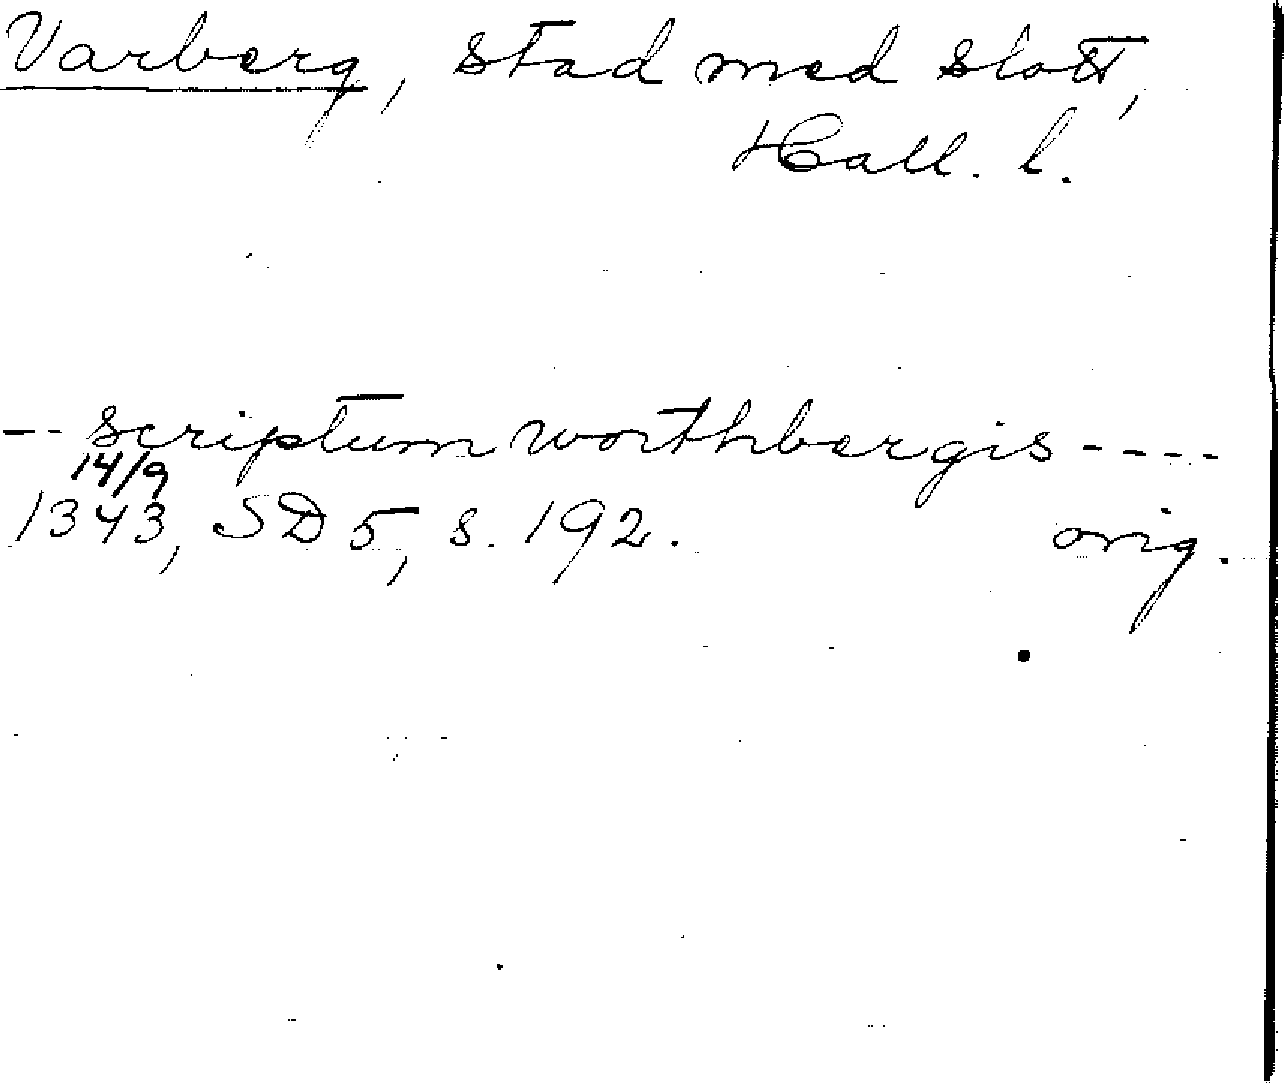 Varberg, stad med slott,
Hall. l.
-- scriptum worthbergis ----
14/9
1343, SD 5, s. 192. orig.